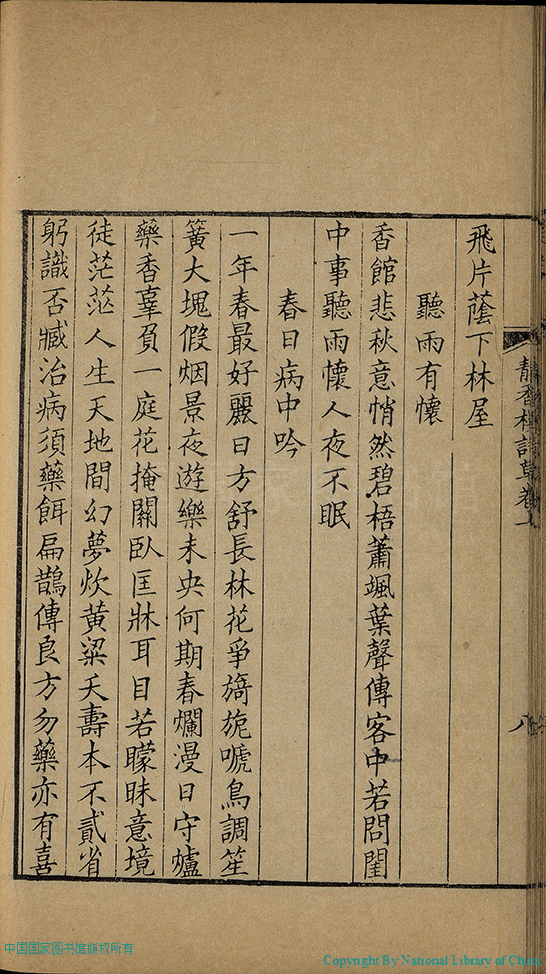 飛片蔭下林屋
聽雨有懷
香館悲秋意悄然碧梧蕭颯葉聲傳客中若問閨
中事聽雨懷人夜不眠
春日病中吟
一年春最好麗日方舒長林花爭旖旎嗁鳥調笙
簧大塊假烟景夜遊樂未央何期春爛漫日守爐
藥香辜負一庭花掩關臥匡牀耳目若矇昧意境
徒茫茫人生天地間幻夢炊黃粱夭壽本不貳省
躬識否臧治病須藥餌扁鵲傳良方勿藥亦有喜
卷一
八
中国国家图书馆版权所有
Copyright By National Library of China